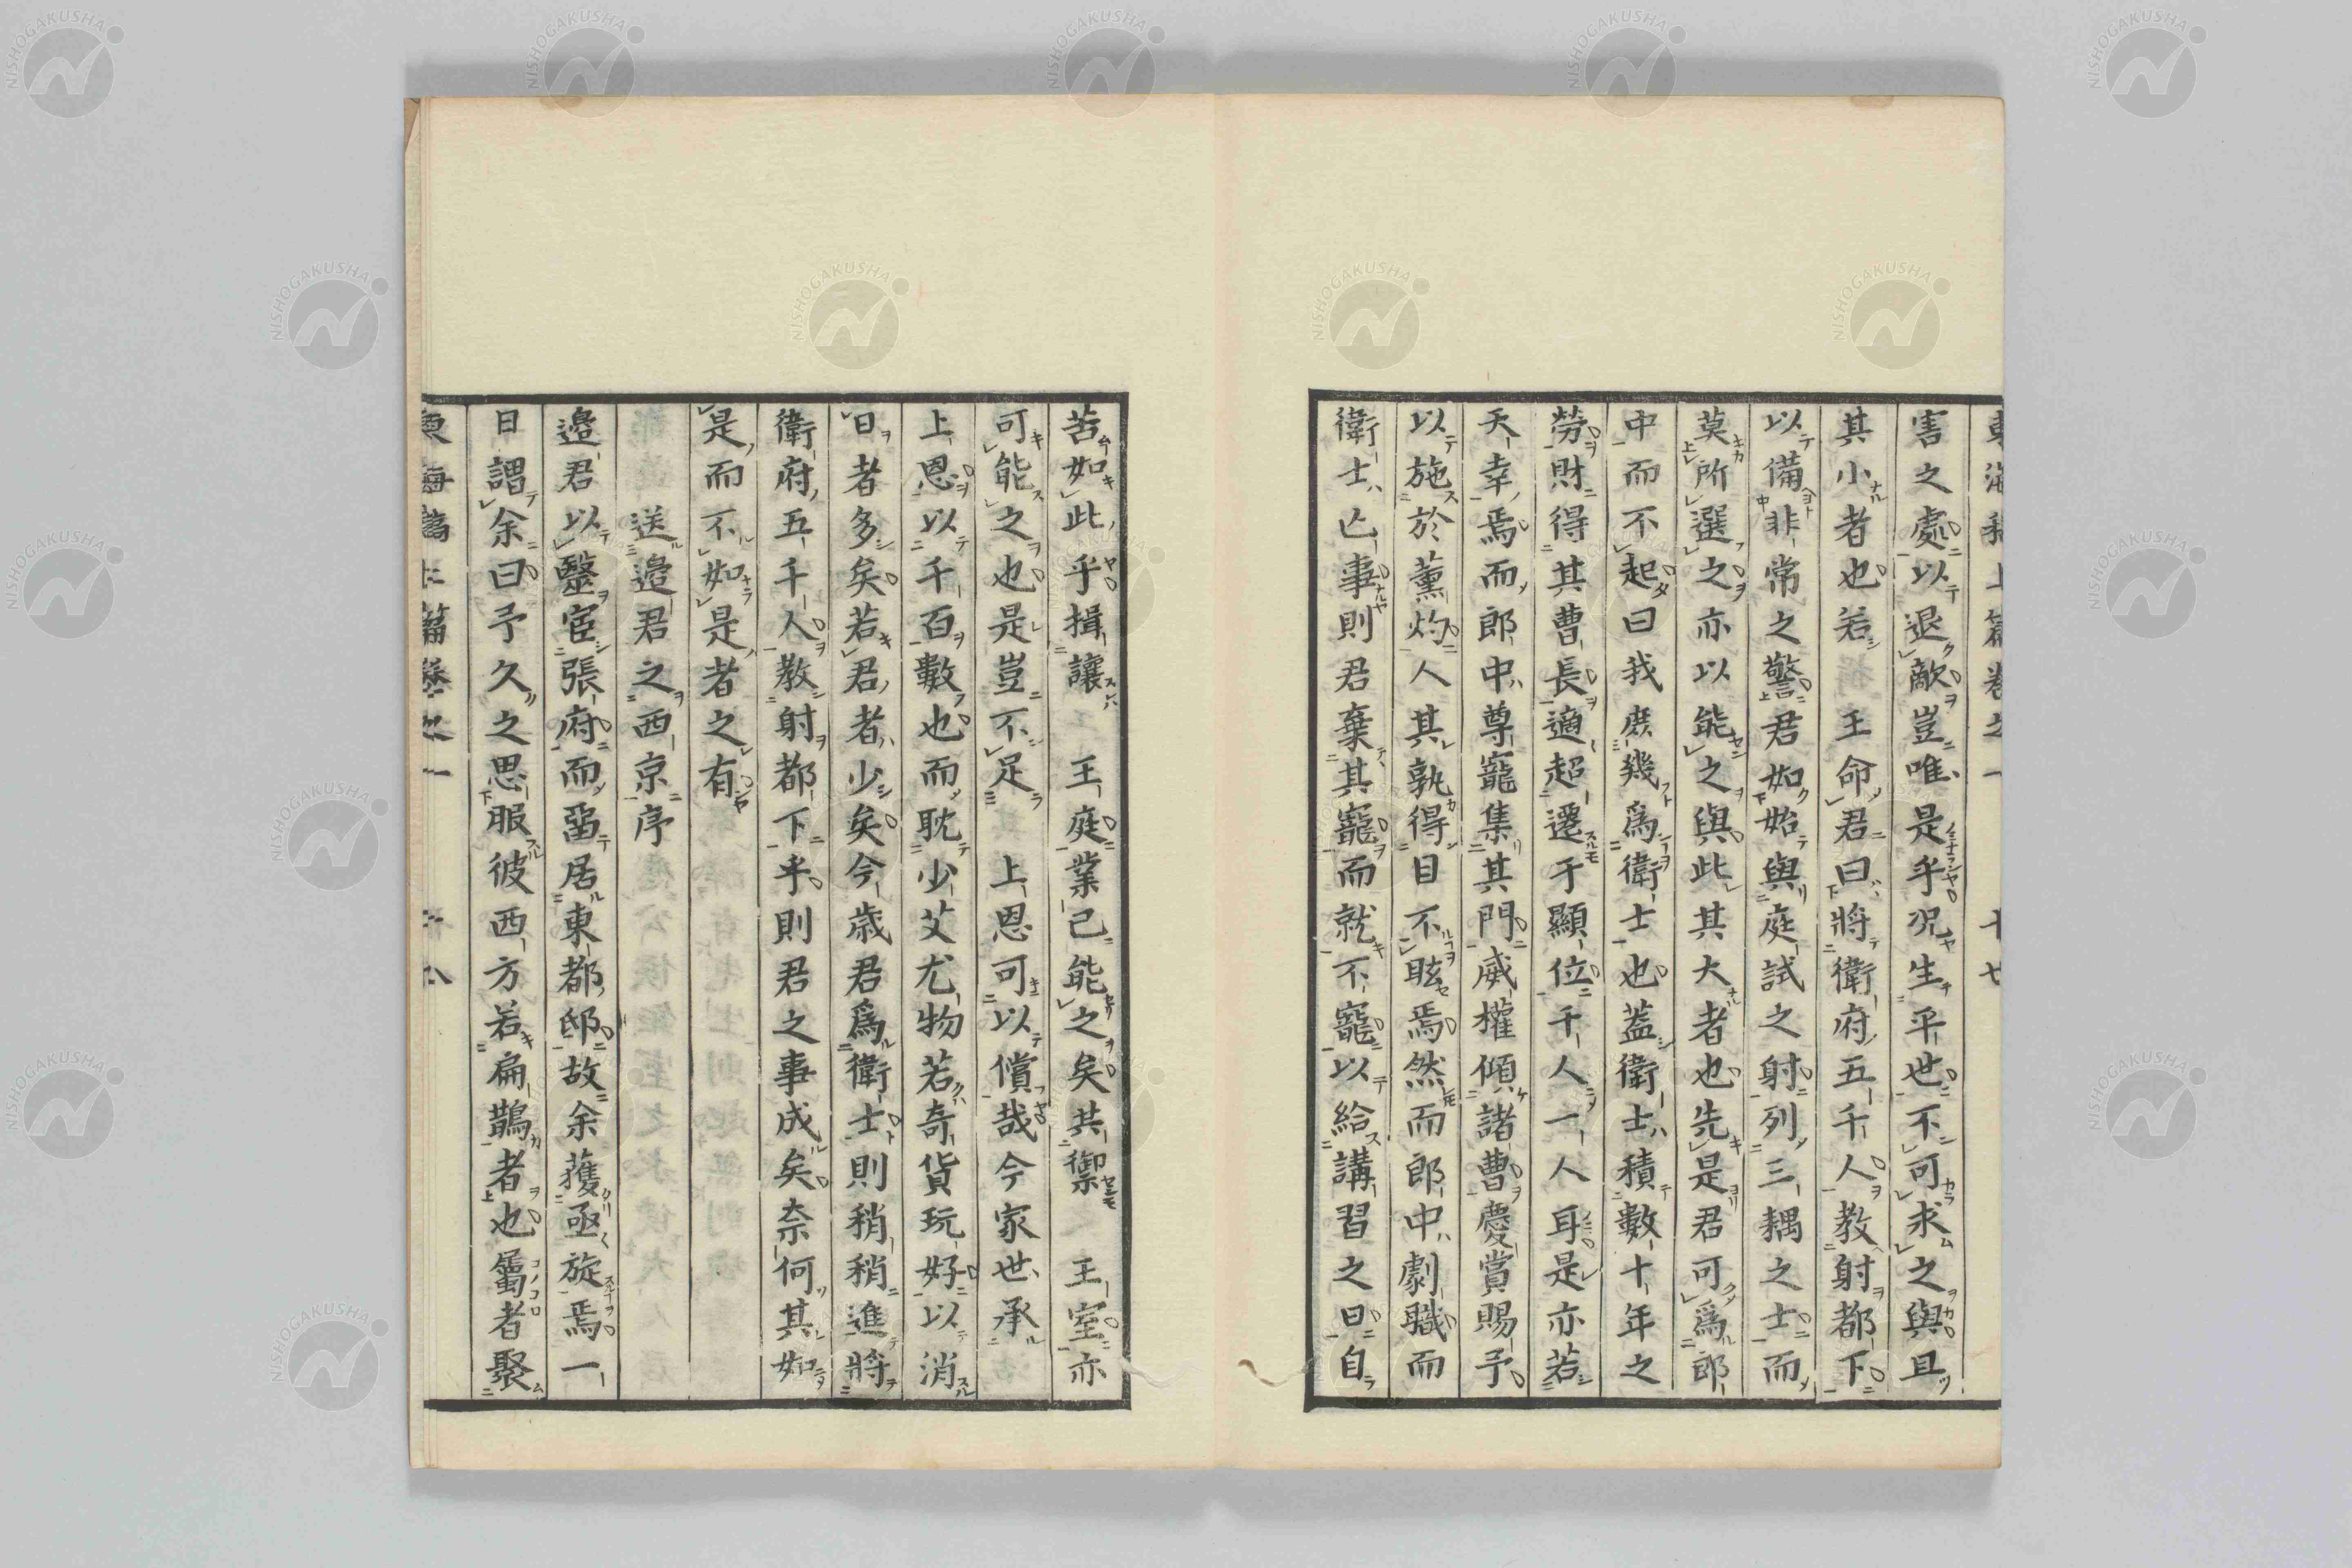 東海藁上篇卷之一 十七
害之處以退敵豈唯是乎况生平世不可求之與且
其小者也若 王命君曰將衛府五千人教射都下
以備非常之警君如始與庭試之射列三耦之士而
莫所選之亦以能之與此其大者也先是君可爲郎
中而不起曰我庶幾爲衛士也蓋衛士積數十年之
勞財得其曹長適超遷于顯位千人一人耳是亦若
天幸焉而郎中尊寵集其門威權傾諸曹慶賞賜予
以施於薰灼人其孰得目不眩焉然而郎中劇職而
衛士亡事則君棄其寵而就不寵以給講習之日自
苦如此乎揖讓 王庭業已能之矣其禦 王室亦
可能之也是豈不足 上恩可以償哉今家世承
上恩以千百數也而耽少艾尤物若奇貨玩好以消
日者多矣若君者少矣今歲君爲衛士則稍稍進將
衛府五千人教射都下乎則君之事成矣奈何其如
是而不如是者之有
送邉君之西京序
邉君以毉宦張府而畱居東都邸故余獲亟旋焉一
日謂余曰予久之思服彼西方若扁鵲者也屬者聚
東海藁上篇卷之一 十八
NISHOGAKUSHA